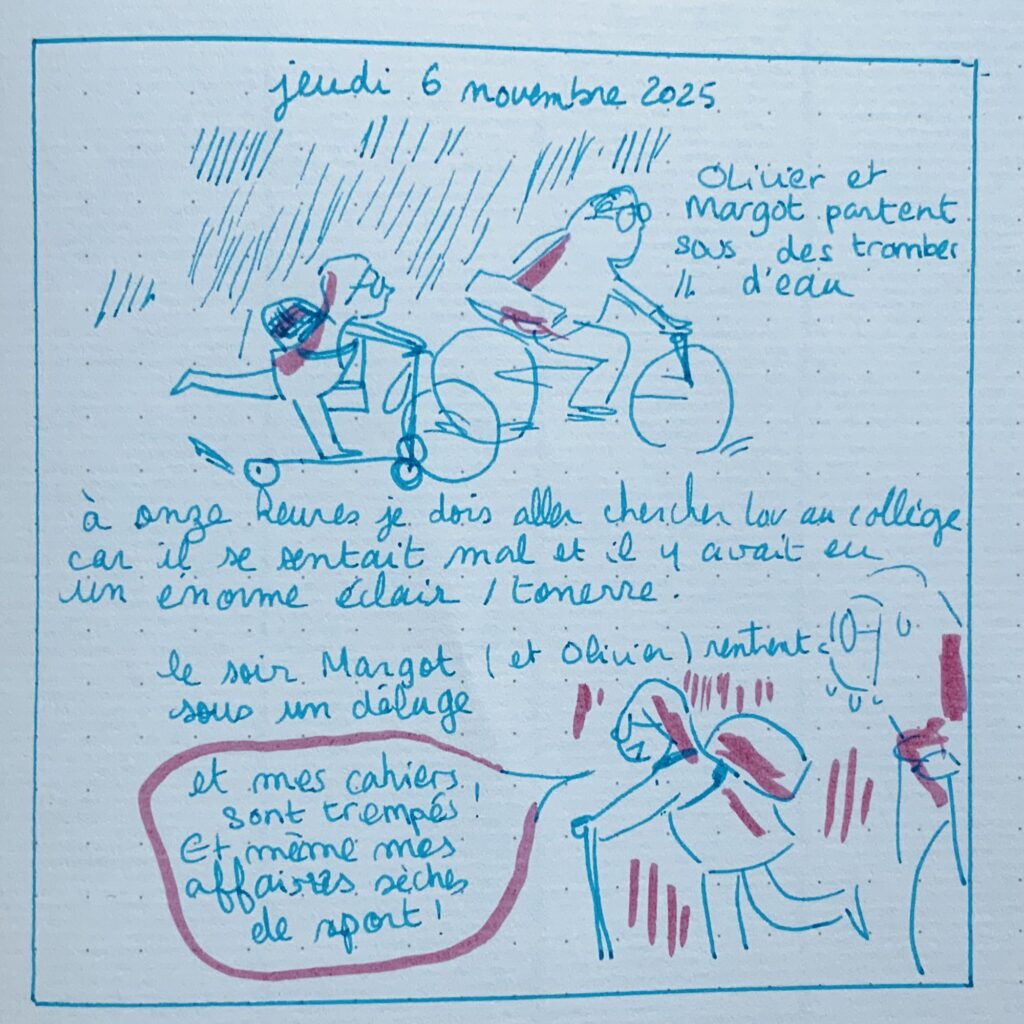 jeudi 6 novembre 2025
Olivier et
Margot partent
sous des trombes
d'eau
à onze heures je dois aller chercher Lou au collège
car il se sentait mal et il y avait eu
un énorme éclair / tonerre.
le soir Margot (et Olivier) rentrent
sous un déluge
et mes cahiers
sont trempés !
Et même mes
affaires sèches
de sport !